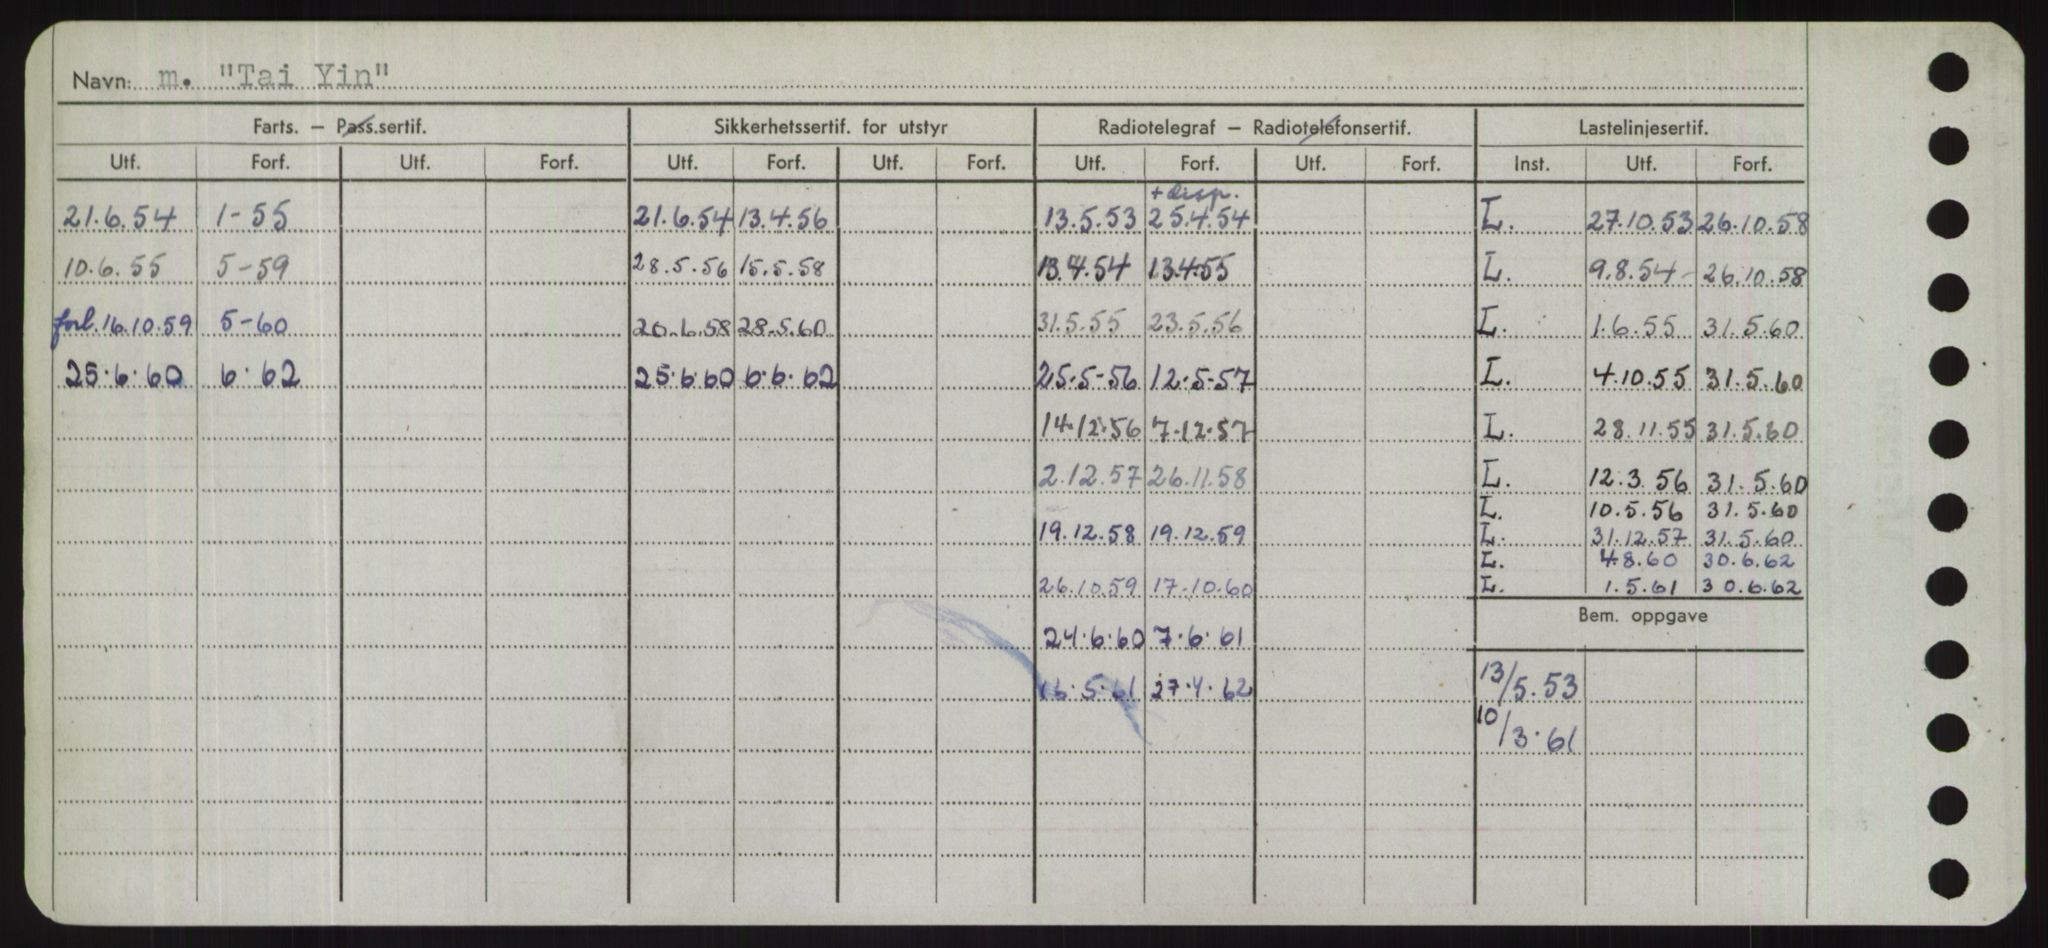 Navn: m. "Tai Yin"
Farts. – Pass.sertif. Sikkerhetssertif. for utstyr Radiotelegraf – Radiotelefonsertif. Lastelinjesertif.
Utf. Forf. Utf. Forf. Utf. Forf. Utf. Forf. Utf. Forf. Utf. Forf. Inst. Utf. Forf.
+ disp.
21.6.54 1-55 21.6.54 13.4.56 13.5.53 25.4.54 L. 27.10.53 26.10.58
10.6.55 5-59 28.5.56 15.5.58 13.4.54 13.4.55 L. 9.8.54 - 26.10.58
forl. 16.10.59 5-60 20.6.58 28.5.60 31.5.55 23.5.56 L. 1.6.55 31.5.60
25.6.60 6.62 25.6.60 6.6.62 25.5-56 12.5-57 L. 4.10.55 31.5.60
14.12.56 7.12.57 L. 28.11.55 31.5.60
2.12.57 26.11.58 L. 12.3.56 31.5.60
L. 10.5.56 31.5.60
19.12.58 19.12.59 L. 31.12.57 31.5.60
L. 4.8.60 30.6.62
26.10.59 17.10.60 L. 1.5.61 30.6.62
Bem. oppgave
24.6.60 7.6.61
16.5.61 27.4.62 13/5.53
10/3.61